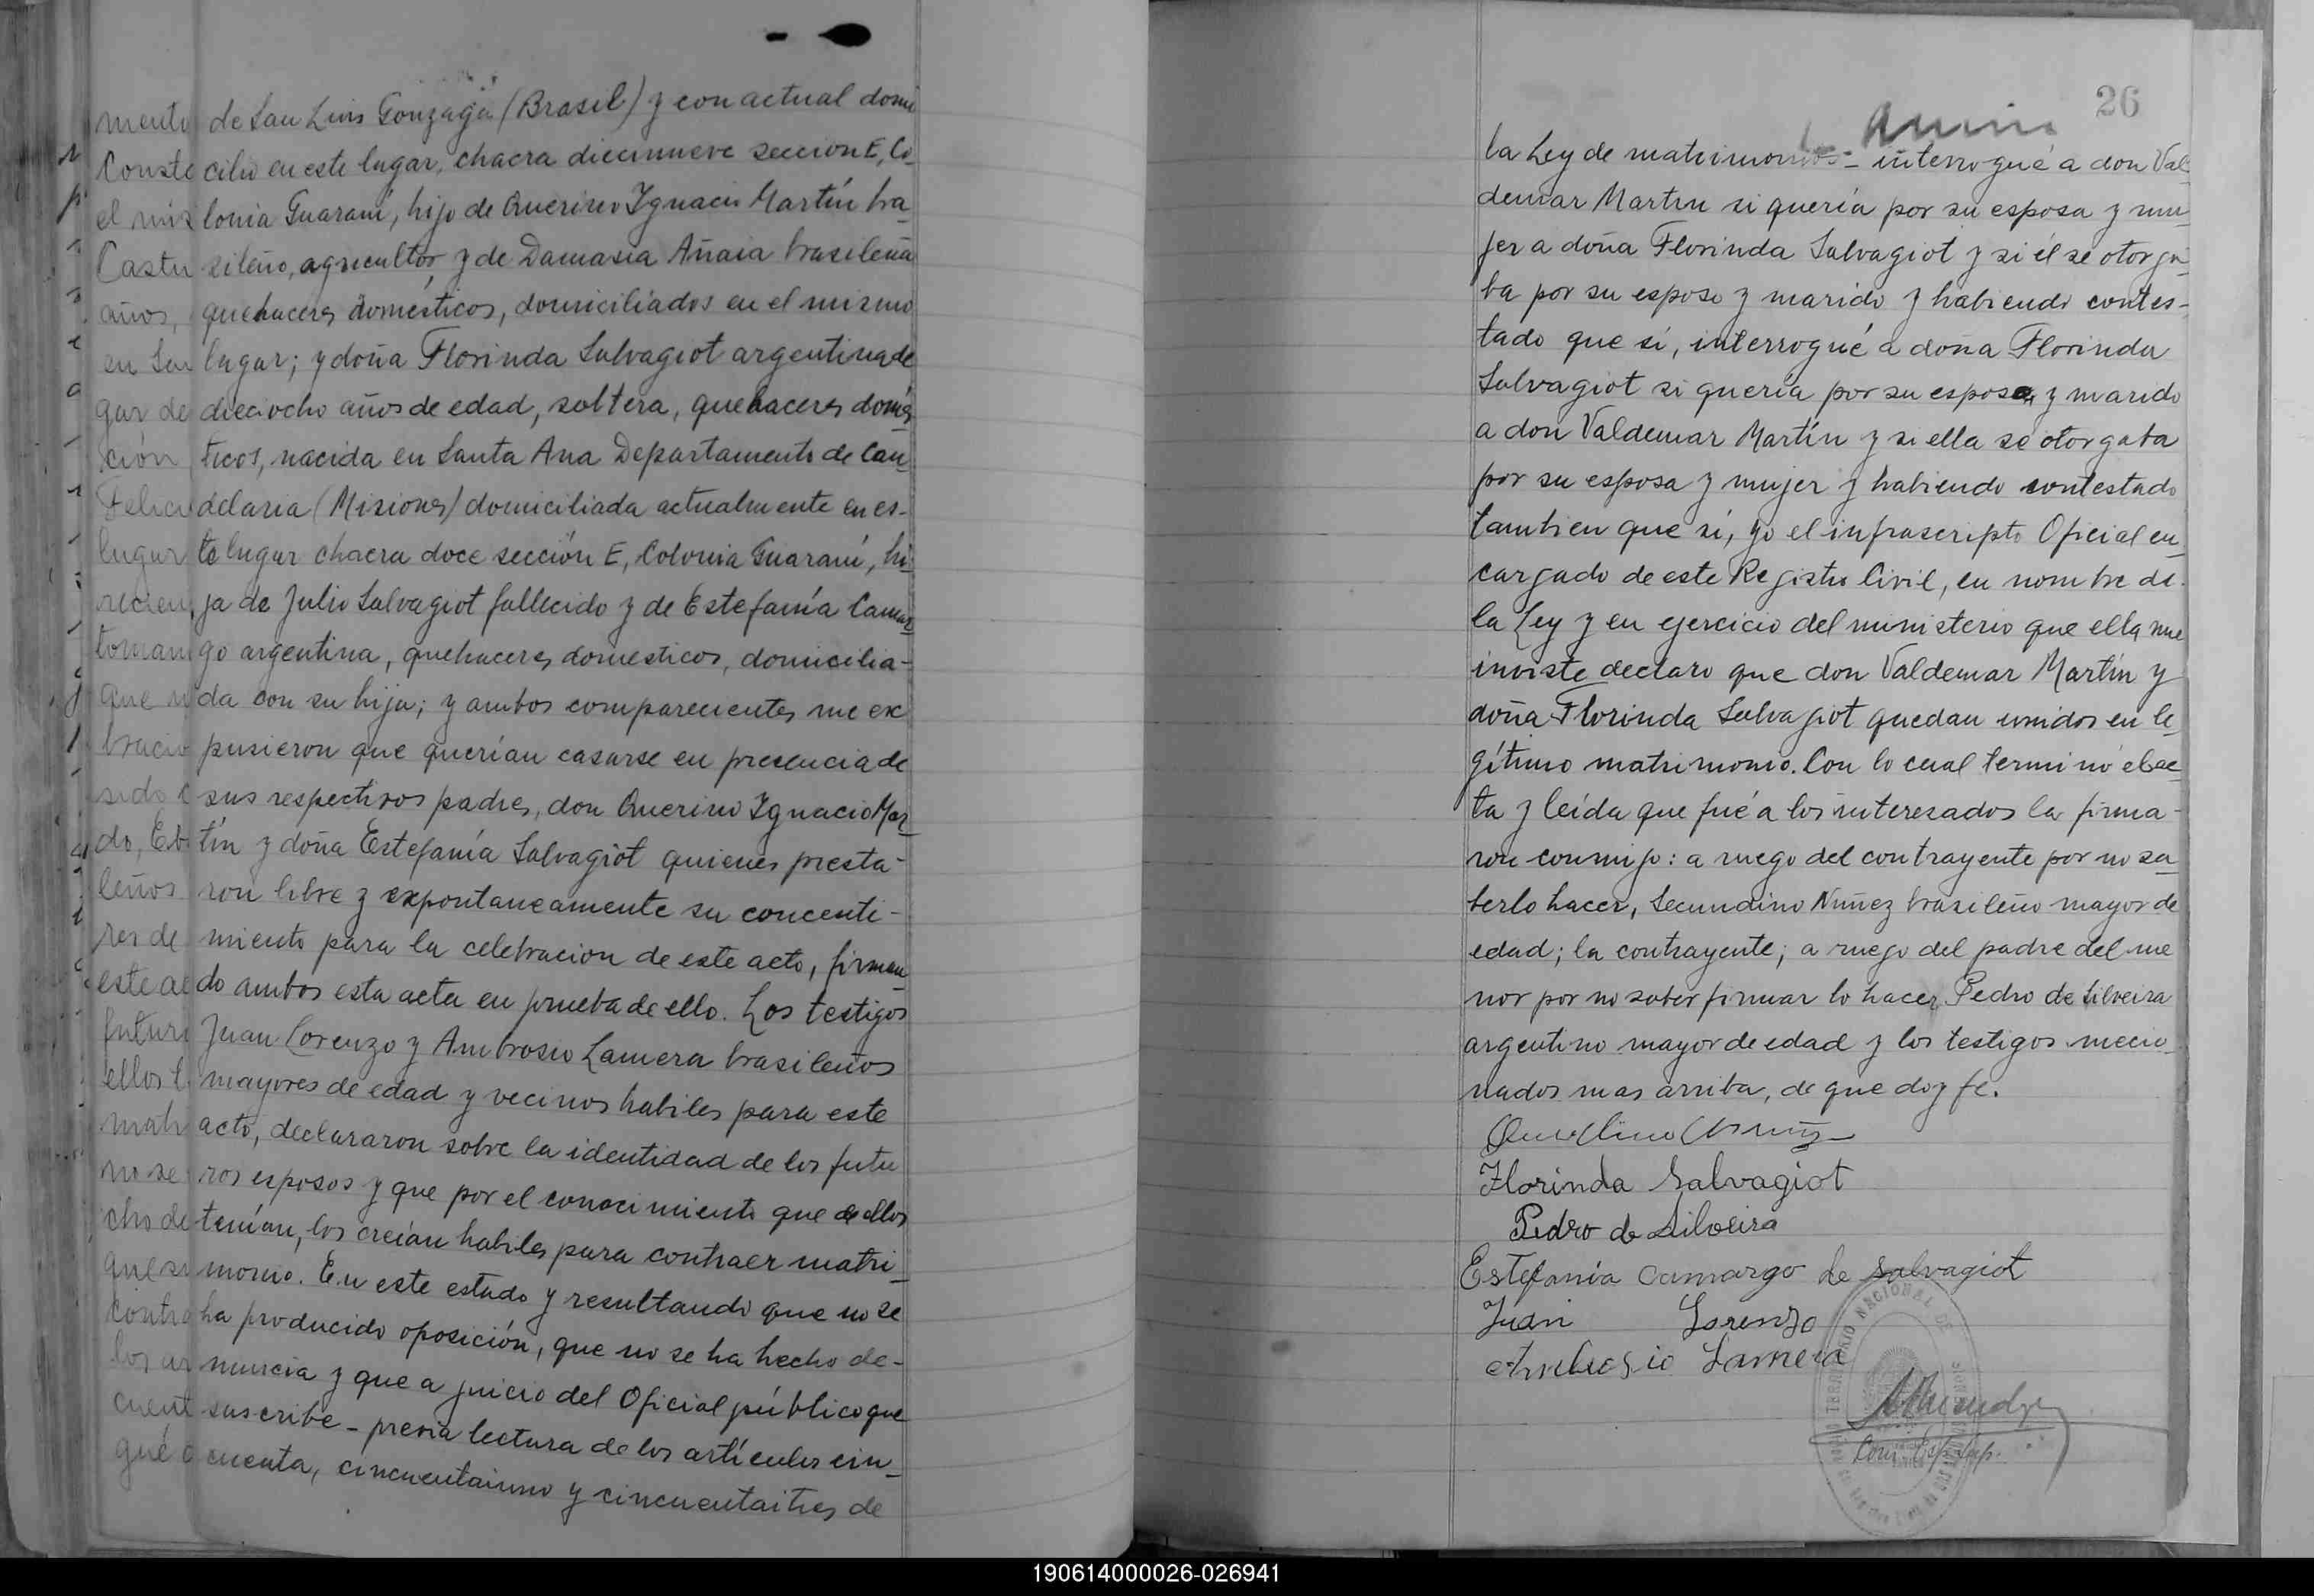 de San Luis Gonzaga (Brasil) y con actual domi
cilio en este lugar, chacra diecinueve seccion E, Co_
lonia Guaraní, hijo de Querino Ygnacio Martín bra_
sileño, agricultor y de Damasia Añaia brasileña
quehaceres domésticos, domiciliados en el mismo
lugar; y doña Florinda Salvagiot argentina de
dieciocho años de edad, soltera, quehaceres domés
ticos, nacida en Santa Ana Departamento de Can_
delaria (Misiones) domiciliada actualmente en es-
te lugar chacra doce sección E, Colonia Guaraní, hi_
ja de Julio Salvagiot fallecido y de Estefanía Camar_
go argentina, quehaceres domesticos, domicilia-
da con su hija; y ambos comparecientes me ex
pusieron que querían casarse en presencia de
sus respectivos padres, don Querino Ygnacio Mar_
tín y doña Estefanía Salvagiot quienes presta-
ron libre y expontaneamente su concenti-
miento para la celebracion de este acto, firman_
do ambos esta acta en prueba de ello. Los testigos
Juan Lorenzo y Ambrosio Lamera brasileños
mayores de edad y vecinos habiles para este
acto, declararon sobre la identidad de los futu
ros esposos y que por el conocimiento que de ellos
tenían, los creían habiles para contraer matri_
monio. En este estado y resultando que no se
ha producido oposición, que no se ha hecho de-
nuncia y que a juicio del Oficial público que
suscribe - previa lectura de los artículos cin_
cuenta, cincuentaiuno y cincuentaitres de
26
la Ley de matrimonios - interrogué a don Val_
demar Martin si quería por su esposa y mu_
jer a doña Florinda Salvagiot y si él se otorga_
ba por su esposo y marido y habiendo contes-
tado que si, interrogué a doña Florinda
Salvagiot si quería por su esposo y marido
a don Valdemar Martín y si ella se otorgaba
por su esposa y mujer y habiendo contestado
tambien que sí, yo el infrascripto Oficial en_
cargado de este Registro Civil, en nombre de
la Ley y en ejercicio del ministerio que ella me
inviste declaro que don Valdemar Martín y
doña Florinda Salvagiot quedan unidos en le_
gítimo matrimonio. Con lo cual terminó el ac_
ta y leída que fué a los interesados la firma-
ron conmigo: a ruego del contrayente por no sa_
berlo hacer, Secundino Nuñez brasileño mayor de
edad; la contrayente; a ruego del padre del me
nor por no saber firmar lo hacer, Pedro de Silveira
argentino mayor de edad y los testigos mecio_
nados mas arriba, de que doy fe.
Florinda Salvagiot
Pedro de Silveira
Estefania Camargo de Salvagiot
Juan Lorenzo
Ambrosio Lamera
190614000026-026941